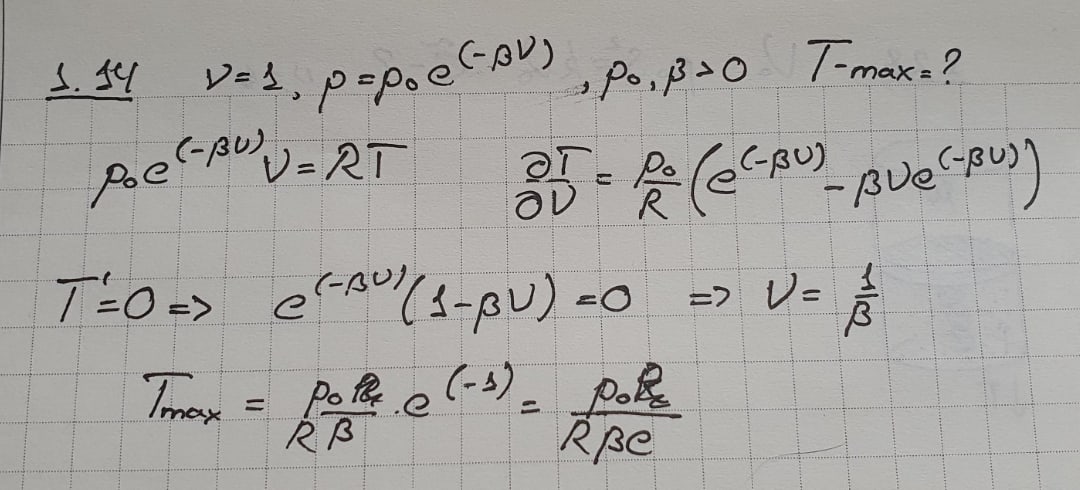 1.14 ν=1, p=p₀e^(-βV), p₀, β>0 T-max=?
p₀e^(-βV)V=RT ∂T/∂V = p₀/R (e^(-βV) - βVe^(-βV))
T'=0 => e^(-βV)(1-βV)=0 => V= 1/β
Tmax = p₀/Rβ · e^(-1) = p₀/Rβe